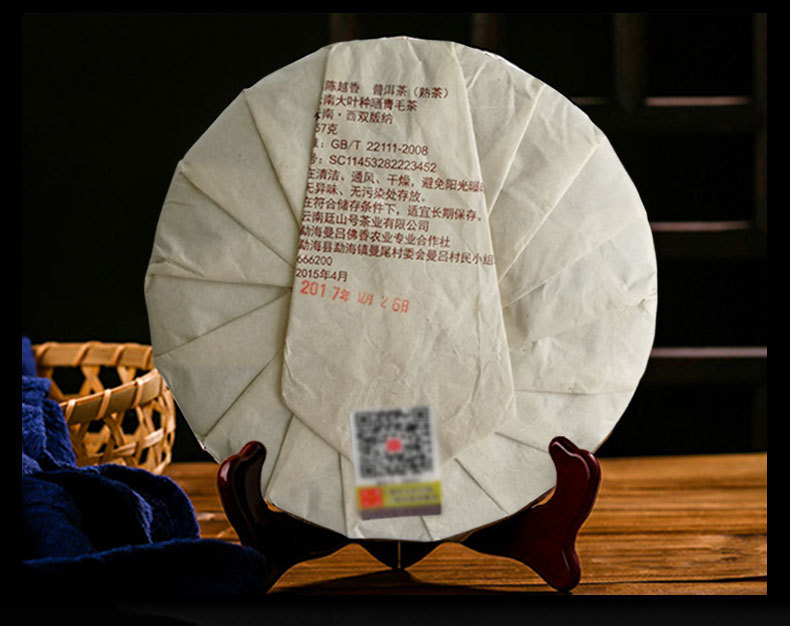 陈越香 普洱茶（熟茶）
南大叶种晒青毛茶
南·西双版纳
57克
：GB/T 22111-2008
号：SC11453282223452
在清洁、通风、干燥，避免阳光
无异味、无污染处存放。
在符合储存条件下，适宜长期保存。
云南廷山号茶业有限公司
勐海曼吕佛香农业专业合作社
勐海县勐海镇曼尾村委会曼吕村民小组
666200
2015年4月
2017年10月26日